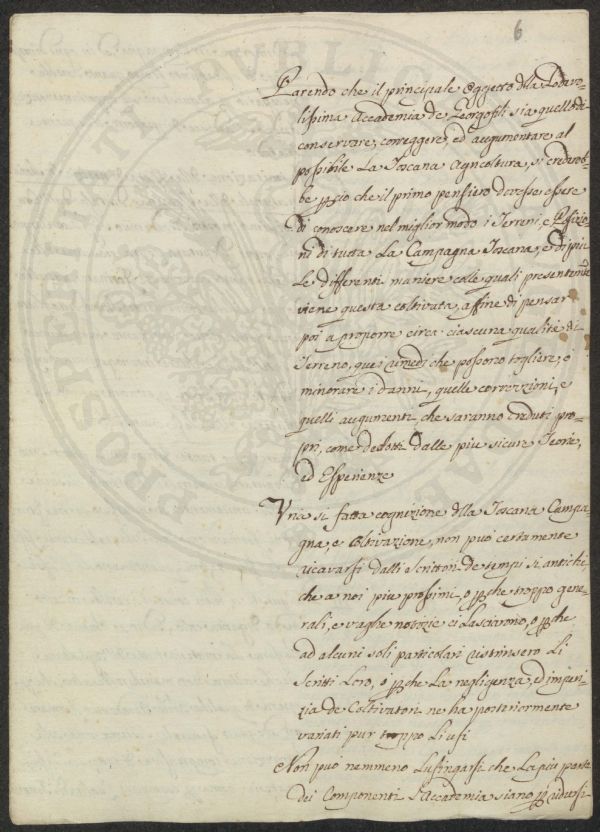 6
Parendo che il principale Oggetto dlla Lodevo-
lissima Accademia de Georgofili sia quello di
conservare, correggere, ed augumentare al
possibile La Toscana Agricoltura, si credereb-
be pciò che il primo pensiero dovesse essere
di conoscere nel miglior modo i Terreni, e Posizio-
ni di tutta La Campagna Toscana, e di più
Le differenti maniere colle quali presentemte
viene questa coltivata, affine di pensar
poi a proporre circa ciascuna qualità di
Terreno, quei rimedj che possono togliere, o
minorare i danni, quelle correzzioni, e
quelli augumenti, che saranno creduti pro-
prj, come dedotti dalle più sicure Teorie,
ed Esperienze
Una sì fatta cognizione dlla Toscana Campa-
gna, e Coltivazione, non può certamente
ricavarsi dalli Scrittori de tempi sì antichi,
che a noi più prossimi, o pche troppo gene-
rali, e vaghe notizie ci Lasciarono, o pche
ad alcuni soli particolari ristrinsero Li
Scritti Loro, o pche La negligenza, ed imperi-
zia de Coltivatori ne ha posteriormente
variati pur troppo Li usi
Non può nemmeno Lusingarsi che La più parte
dei Componenti L'Accademia siano p ridursi
PROSPERITATI PUBLICAE